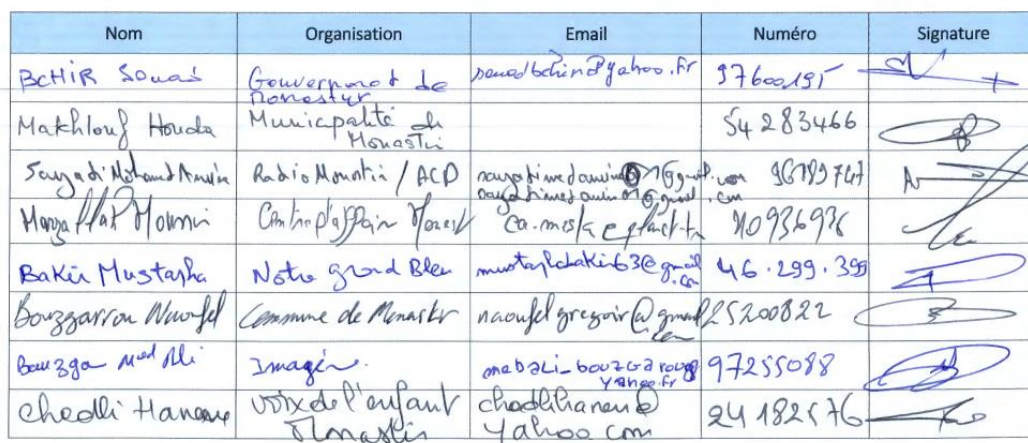 Nom Organisation Email Numéro Signature
BCHIR Souad Gouvernorat de Monastir souadbchir@yahoo.fr 97600195
Makhlouf Houda Municipalité de Monastir 54 283466
Sayadi Mohamed Amine Radio Monastir / ACP 96189747
sayadimedamin01@gmail.com
Mounir Centre d'affair Monast 
Bakir Mustapha Notre grand Bleu mustaphabakir63@gmail.com 46.299.399
Bouzgarrou Naoufel Commune de Monastir naoufelgregoir@gmail.com 25200822
Med Ali Imagin 97255088
Chedli Hanene voix de l'enfant Monastir chadlihanen@yahoo.com 24 182576